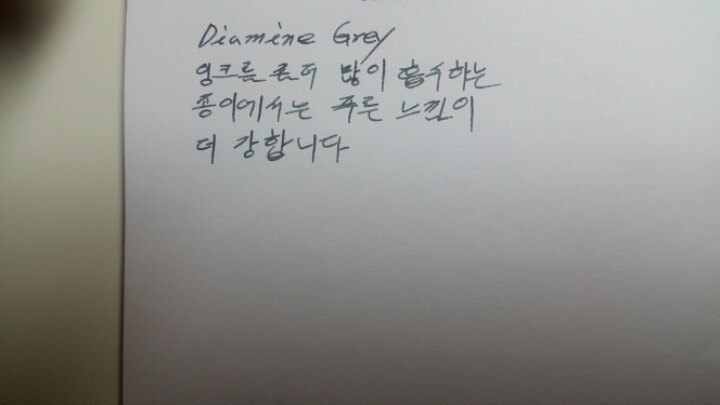 Diamine Grey
잉크를 좀더 많이 흡수하는
종이에서는 푸른 느낌이
더 강합니다